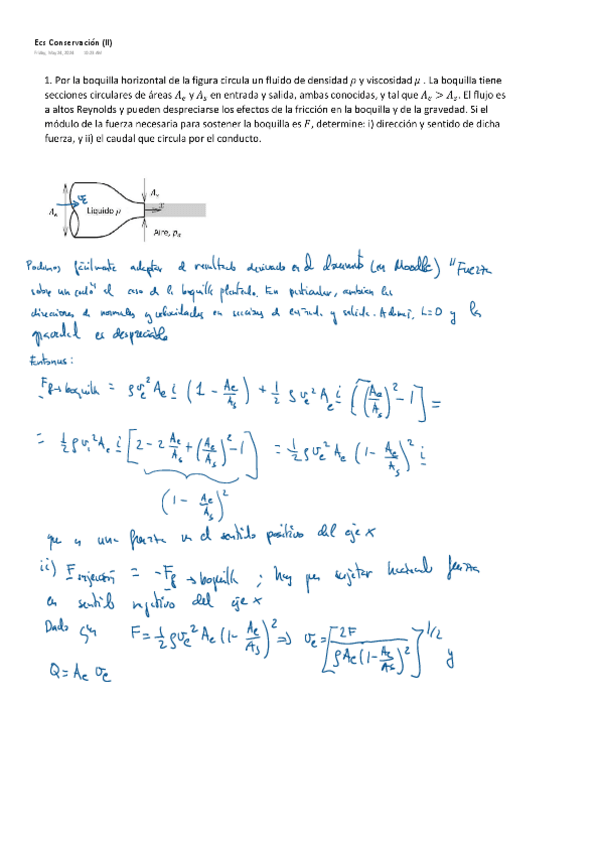 Ecs Conservación (II)
1. Por la boquilla horizontal de la figura circula un fluido de densidad ρ y viscosidad μ . La boquilla tiene
secciones circulares de áreas A_e y A_s en entrada y salida, ambas conocidas, y tal que A_e > A_s. El flujo es
a altos Reynolds y pueden despreciarse los efectos de la fricción en la boquilla y de la gravedad. Si el
módulo de la fuerza necesaria para sostener la boquilla es F, determine: i) dirección y sentido de dicha
fuerza, y ii) el caudal que circula por el conducto.
A_s
v_e
A_e Líquido ρ x
Aire, p_a
Podemos fácilmente adaptar el resultado derivado en el documento (en Moodle) "Fuerza
sobre un codo" al caso de la boquilla planteado. En particular, cambian las
direcciones de normales y velocidades en secciones de entrada y salida. Además, L=0 y la
gravedad es despreciable
Entonces:
F_f→boquilla = ρ v_e² A_e i (1 - A_e/A_s) + 1/2 ρ v_e² A_e i [(A_e/A_s)² - 1] =
= 1/2 ρ v_e² A_e i [2 - 2 A_e/A_s + (A_e/A_s)² - 1] = 1/2 ρ v_e² A_e (1 - A_e/A_s)² i
(1 - A_e/A_s)²
que es una fuerza en el sentido positivo del eje x
ii) F sujeción = - F_f→boquilla ; hay que sujetar haciendo fuerza
en sentido negativo del eje x
Dado que F = 1/2 ρ v_e² A_e (1 - A_e/A_s)² ⇒ v_e = [2F / ρ A_e (1 - A_e/A_s)²]^1/2 y
Q = A_e v_e